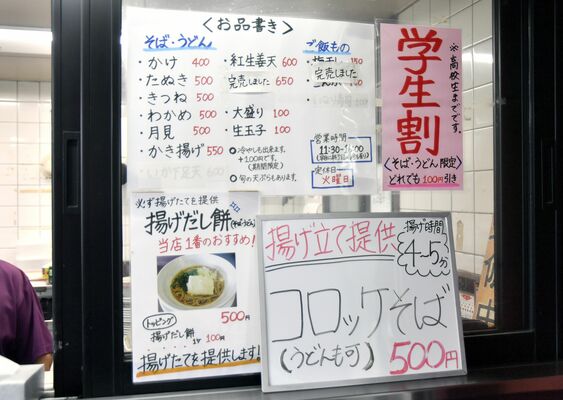 〈お品書き〉
そば・うどん
・かけ 400
・たぬき 500
・きつね 500
・わかめ 500
・月見 500
・かき揚げ 550
・いか下足天 600
・紅生姜天 600
完売しました 650
・大盛り 100
・生玉子 100
○冷やしも出来ます。
+100円です。
(期間限定)
○旬の天ぷらもあります。
ご飯もの
完売しました
営業時間
定休日
火曜日
学生割
※高校生までです。
〈そば・うどん限定〉
どれでも100円引き
必ず揚げたてを提供
揚げだし餅(そば・うどん)
当店1番のおすすめ!
500円
トッピング
揚げだし餅
1ヶ 100円
揚げたてを提供します!
揚げ立て提供
揚げ時間
4~5分
コロッケそば
(うどんも可)
500円